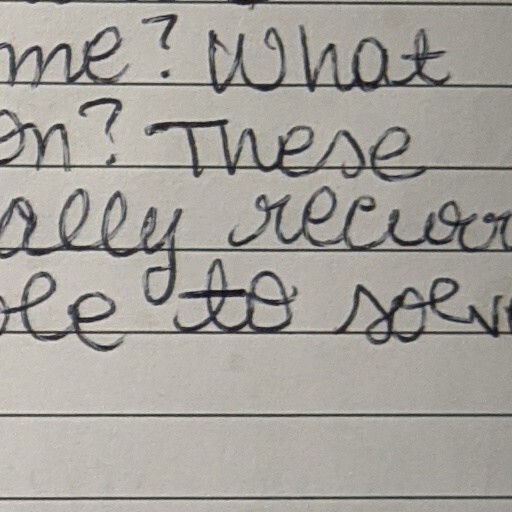 me? What
on? These
ally recurr
ble to solv